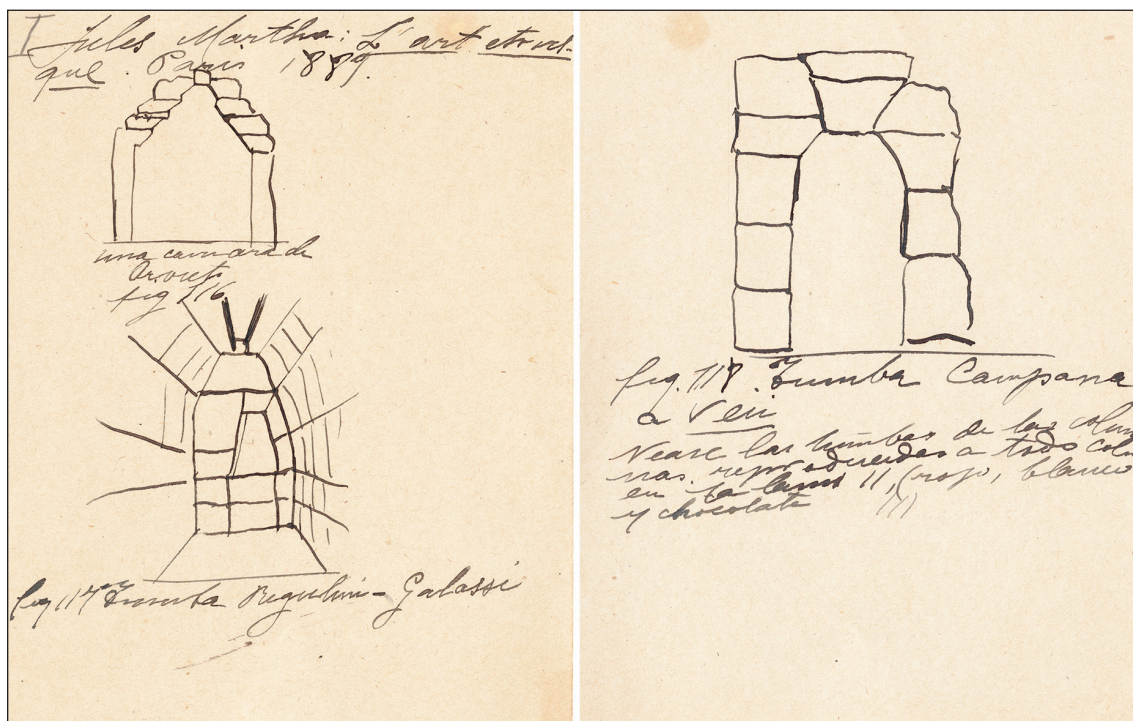 I Jules Martha: L'art etrus-
que. Paris 1889.
una camara de
Orvieto
fig 116
fig 117 Tumba Regulini-Galassi
fig. 118. Tumba Campana
a Veii
Vease las tumbas de las colum
nas reproducidas a todo color
en la lam 11, (rojo, blanco
y chocolate